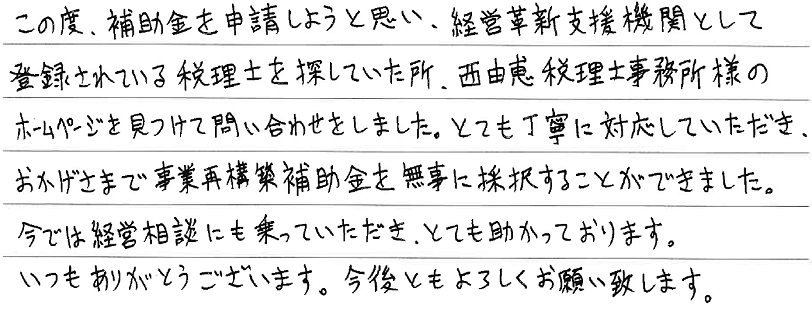 この度、補助金を申請しようと思い、経営革新支援機関として
登録されている税理士を探していた所、西由恵税理士事務所様の
ホームページを見つけて問い合わせをしました。とても丁寧に対応していただき、
おかげさまで事業再構築補助金を無事に採択することができました。
今では経営相談にも乗っていただき、とても助かっております。
いつもありがとうございます。今後ともよろしくお願い致します。